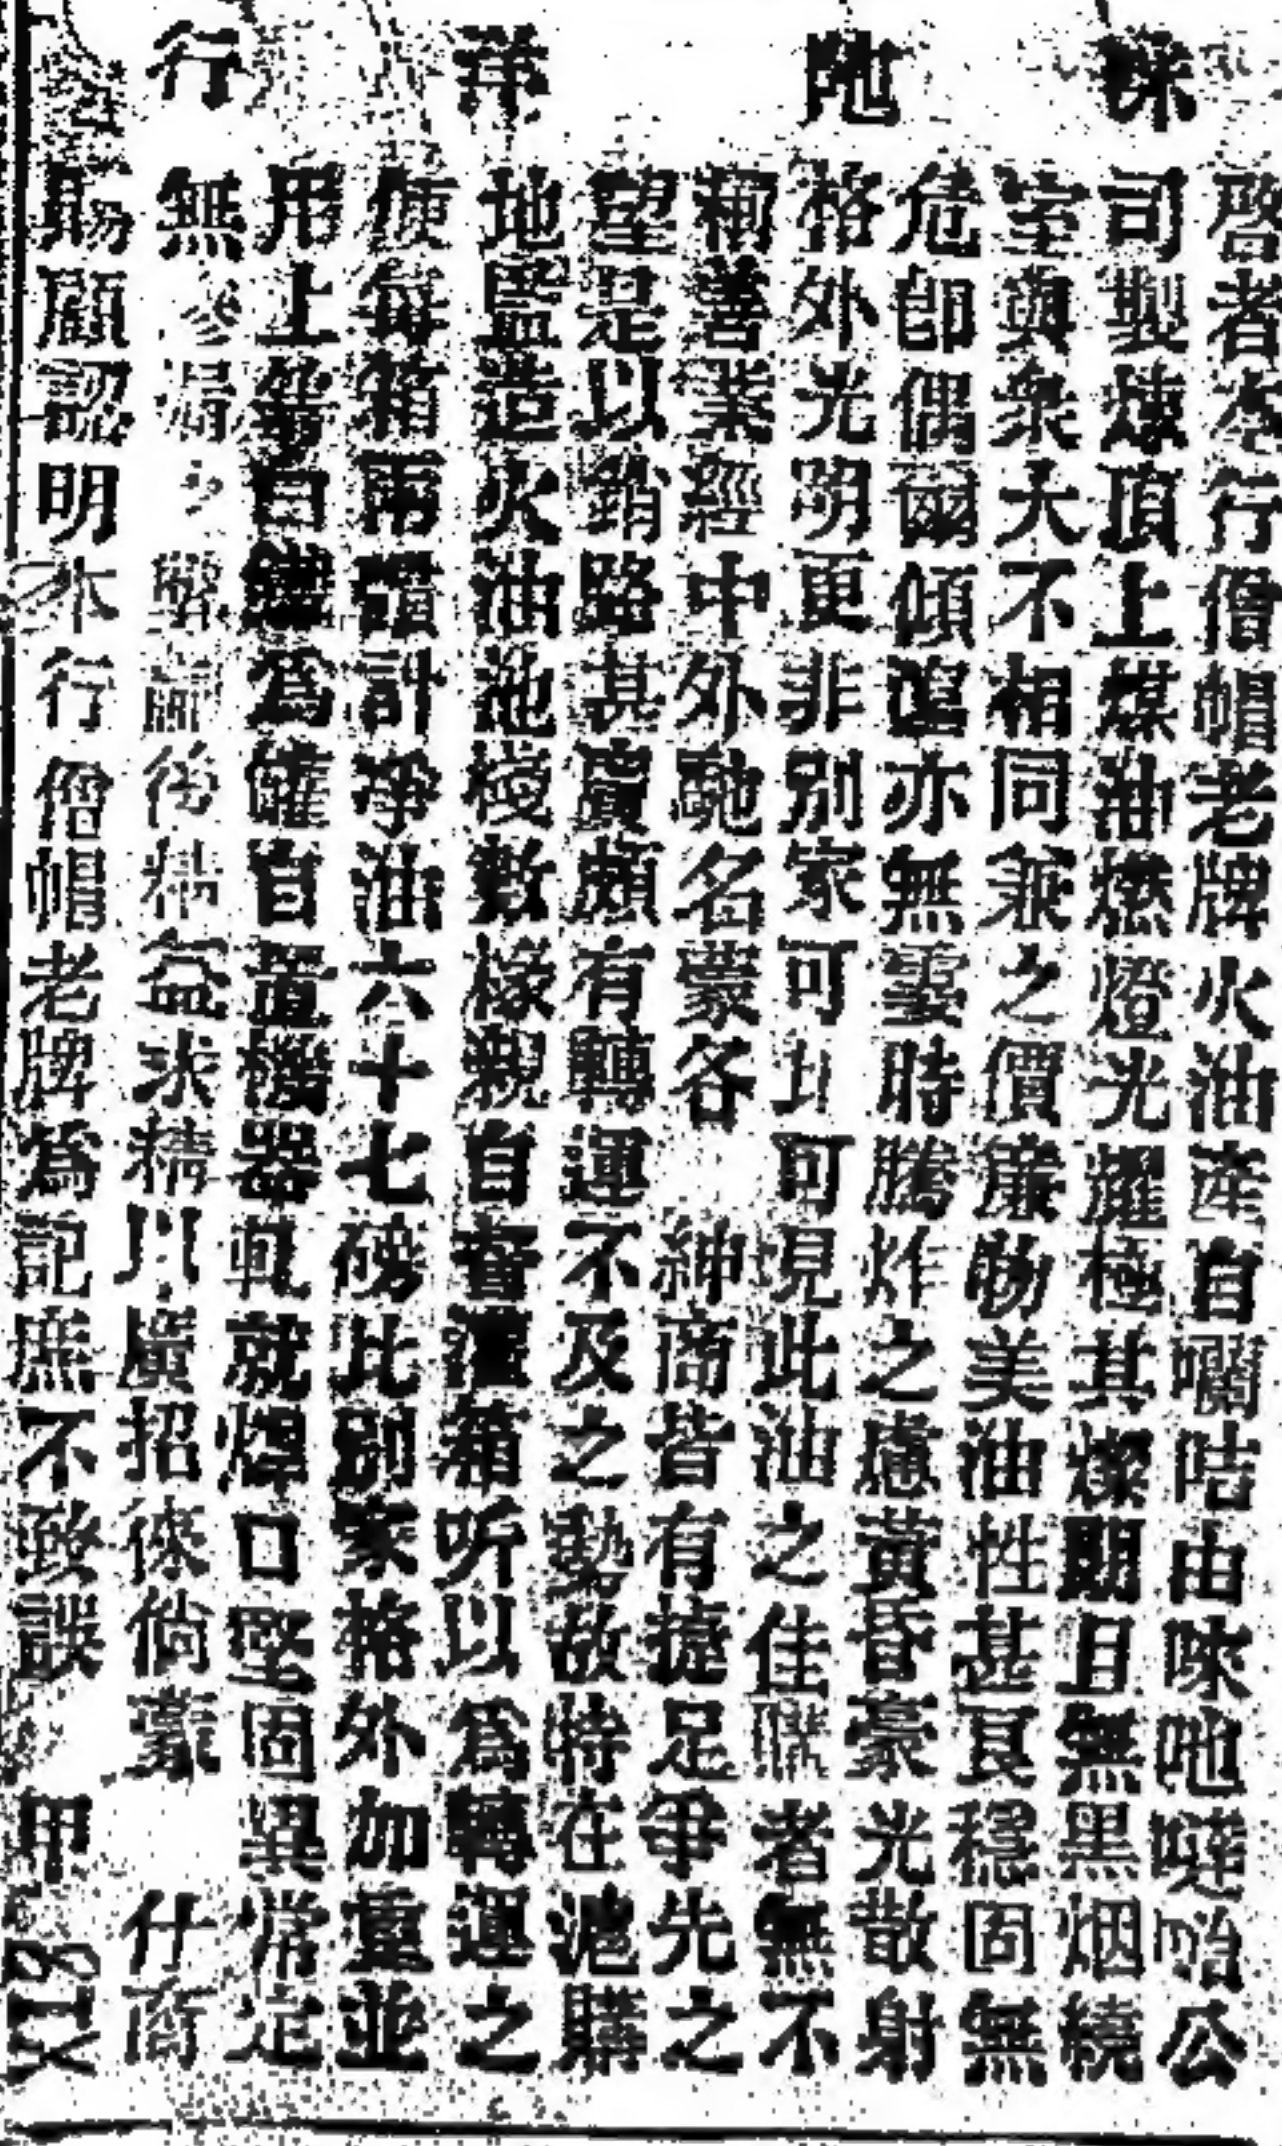 咪 吔 洋 行
啓者本行僧帽老牌火油産自囒咭由咪吔嗹哈公
司製煉頂上煤油燃燈光耀極其燦朗且無黑烟繞
室與衆大不相同兼之價廉物美油性甚良穩固無
危即偶爾傾瀉亦無霎時騰炸之慮黃昏豪光散射
格外光明更非別家可比可見此油之佳勝者無不
稱善業經中外馳名蒙各 紳商皆有捷足爭先之
望是以銷路甚廣頗有轉運不及之勢故特在滬購
地監造火油池棧數椽親自督灌箱听以爲轉運之
便每箱兩罐計淨油六十七磅此別家格外加重並
用上等白鐵爲罐自置機器軋就焊口堅固異常定
無滲漏 嗣後精益求精以廣招徠倘蒙 仕商
賜顧認明本行僧帽老牌爲記庶不致誤 甲